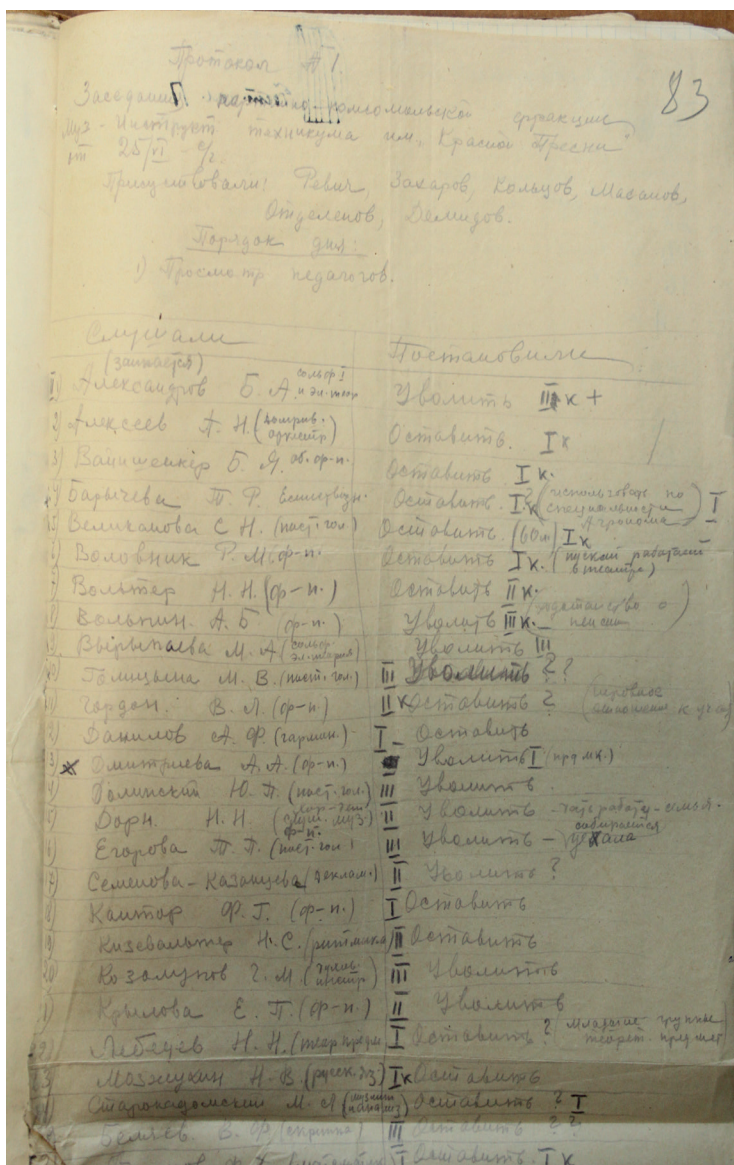 Протокол №1
83
Заседание комсомольской фракции
Муз-Инструкт. техникума им. "Красной Пресни"
от 25/VI с/г.
Присутствовали: Ревич, Захаров, Кольцов, Мазанов,
Отделенов, Демидов.
Порядок дня:
1) Просмотр педагогов.
Слушали Постановили
(заикается)
1) Александров Б. А. сольф. и эл. теор Уволить III к +
2) Алексеев А. Н. (домрив. оркестр) Оставить. I к
3) Б. Я. об. ф-п. Оставить I к.
4) Барычева Т. Р. Естествозн. Оставить. I к ? (использовать по специальности Агронома) I
5) Великанова С Н. (пост. гол.) Оставить. (60 л) I к
6) Воловник Р. М. (ф-п. Оставить I к. (пускай работает в театре)
7) Вольтер Н. Н. (ф-п.) Оставить II к.
8) Вольпин. А. Б (ф-п.) Уволить III к. (ходатайство о пенсии)
9) Вырыпаева М. А (сольф. эл. теория) Уволить III
10) Голицына М. В. (пост. гол.) III Уволить ??
11) Гордон. В. Л. (ф-п.) II к Оставить ? отношение к учащ
12) Данилов А. Ф. (гармон.) I Оставить
13) Дмитриева А. А. (ф-п.) Уволить I (пред мк.)
14) Ю. П. (пост. гол.) III Уволить.
15) Дорн. Н. Н. (слуш. муз) II Уволить - работу
16) Егорова Т. П. (пост. гол.) III Уволить - собирается
17) Семенова-Казанцева (деклам.) II Уволить ?
18) Кантор Ф. Г. (ф-п.) I Оставить
19) Кизевальтер Н. С. (ритмика) II Оставить
20) Козолупов Г. М. III Уволить
21) Крылова Е. П. (ф-п.) II Уволить
22) Лебедев Н. Н. (теор. предм I Оставить ? Младшие группы теорет. предмет
23) Мазжухин Н. В (русск. яз) I к Оставить
Старокадомский М. Л Оставить ? I
Беляев. В. Ф. (скрипка) III Оставить ? ?
I Оставить. I к